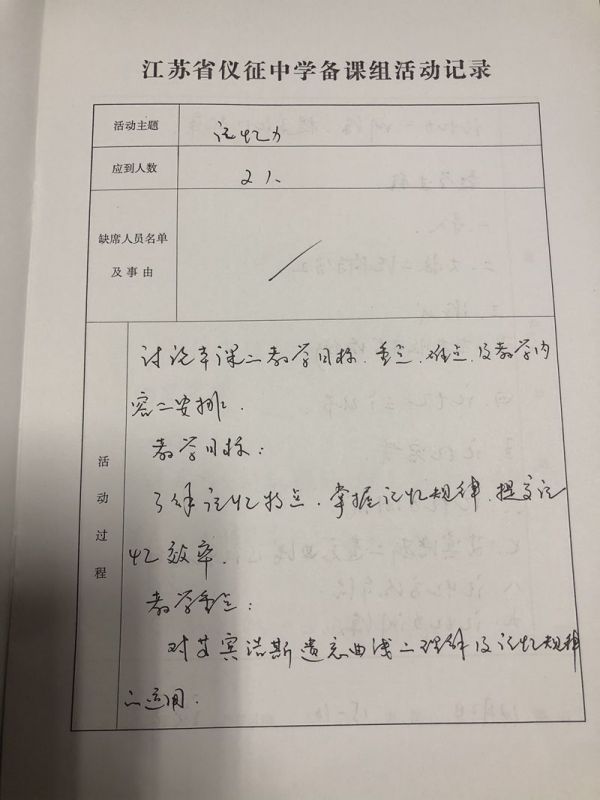 江苏省仪征中学备课组活动记录
活动主题
记忆力
应到人数
2人
缺席人员名单
及事由
活动过程
讨论本课之教学目标、重点、难点、及教学内
容之安排.
教学目标:
了解记忆特点、掌握记忆规律、提高记
忆效率.
教学重点:
对艾宾浩斯遗忘曲线之理解及记忆规律
之运用.